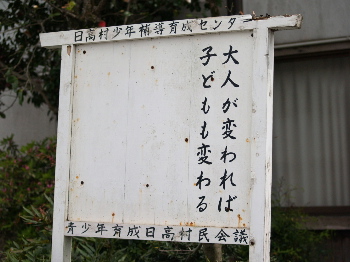 日高村少年補導育成センター
大人が変われば
子どもも変わる
青少年育成日高村民会議